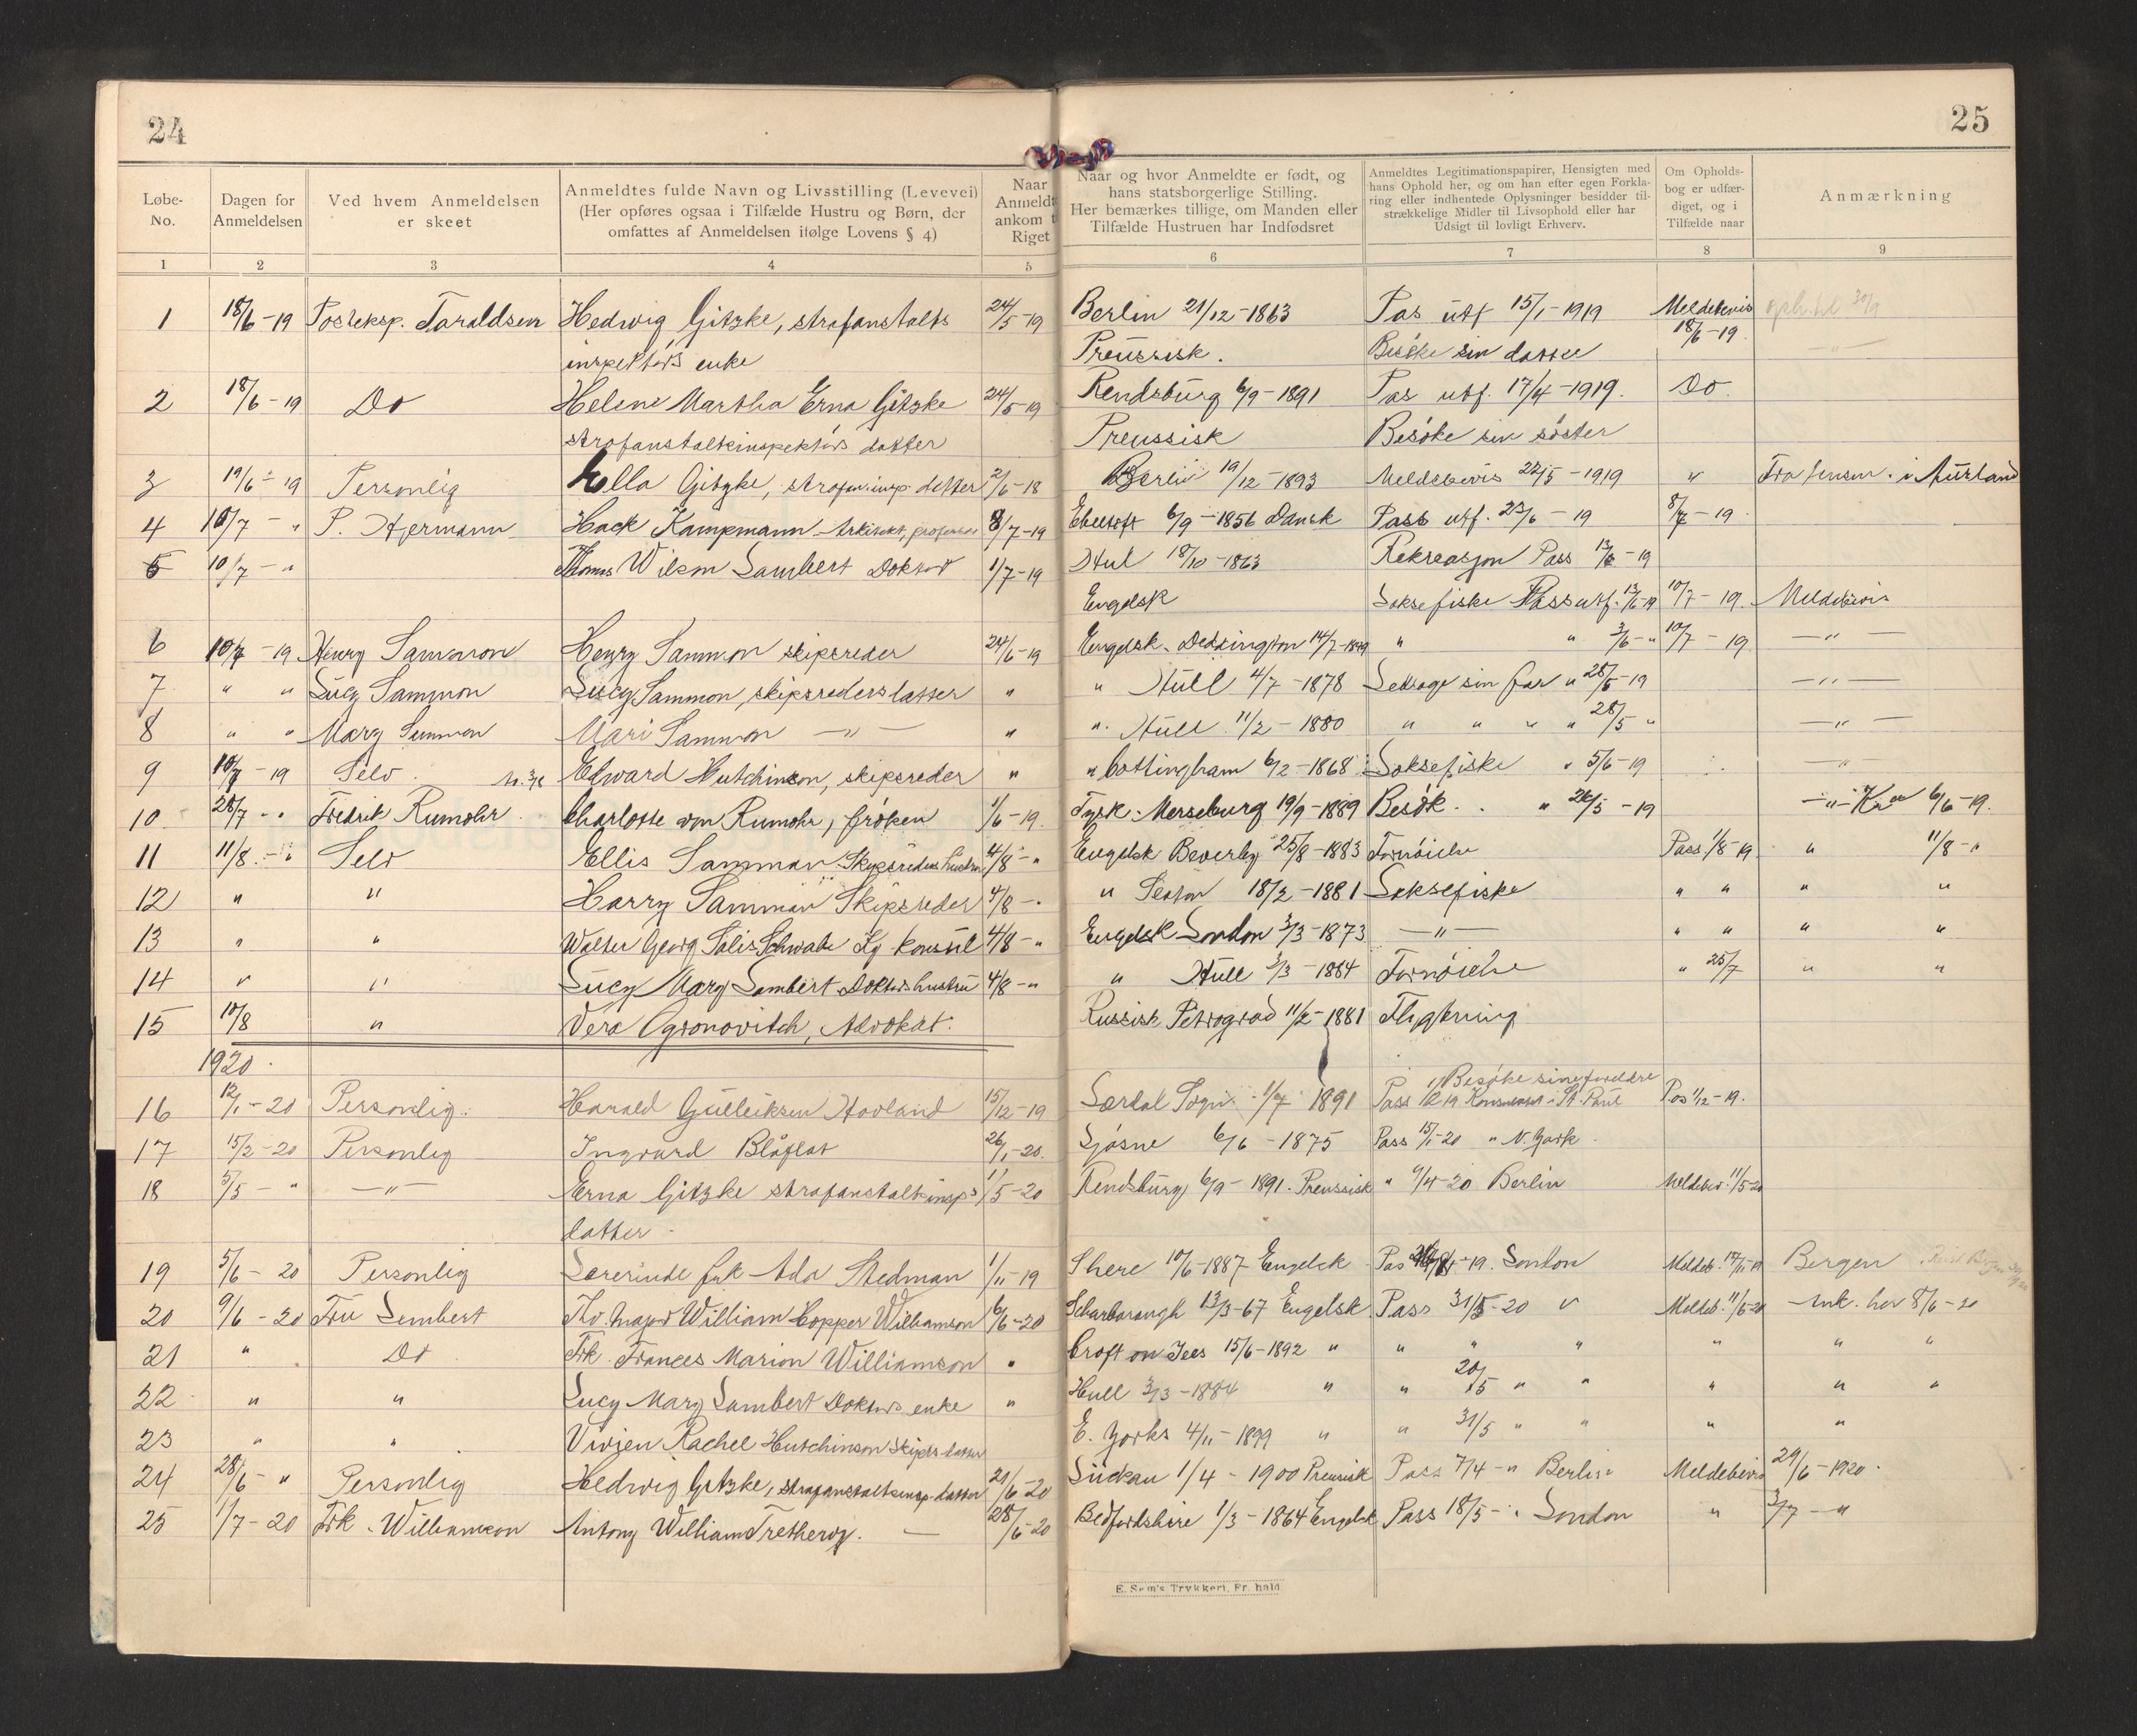 24
25
Løbe-No.
Dagen for Anmeldelsen
Ved hvem Anmeldelsen er skeet
Anmeldtes fulde Navn og Livsstilling (Levevei) (Her opføres ogsaa i Tilfælde Hustru og Børn, der omfattes af Anmeldelsen ifølge Lovens § 4)
Naar Anmeldt ankom t Riget
Naar og hvor Anmeldte er født, og hans statsborgerlige Stilling. Her bemærkes tillige, om Manden eller Tilfælde Hustruen har Indfødsret
Anmeldtes Legitimationspapirer, Hensigten med hans Ophold her, og om han efter egen Forklaring eller indhentede Oplysninger besidder tilstrækkelige Midler til Livsophold eller har Udsigt til lovligt Erhverv.
Om Opholdsbog er udfærdiget, og i Tilfælde naar
Anmærkning
1 2 3 4 5 6 7 8 9
1 18/6-19 Posteksp. Taraldsen Hedwig Gitzke, strafanstalts 24/5-19 Berlin 21/12-1863 Pas utf 15/1-1919 Meldebevis
inspektørs enke Preussisk. Besøke sin datter 18/6-19
2 18/6-19 Do Helene Martha Erna Gitzke 24/5-19 Rendsburg 6/9-1891 Pas utf. 17/4-1919. Do.
strafanstaltsinspektørs datter Preussisk Besøke sin søster
3 19/6-19 Personlig Ella Gitzke, datter 2/6-18 Berlin 19/12-1893 Meldebevis 22/5-1919 " Fra i Aurland
4 10/7 - " P. Hjermann Hack Kampmann Arkitekt, professor 8/7-19 Ebeltoft 6/9-1856 Dansk Pass utf. 23/6-19 8/7-19
5 10/7 - " Thomas Wilson Lambert Doktor 1/7-19 Hul 18/10-1863 Rekreasjon Pass 13/6-19
Engelsk Laksefiske Pass utf. 13/6-19 10/7-19. Meldebevis
6 10/7-19 Henry Sammon Henry Sammon skipsreder 24/6-19 Engelsk. 14/7-1849 " " 3/6-" 10/7-19 -"-
7 " " Lucy Sammon Lucy Sammon, skipsreders datter " " Hull 4/7-1878 Ledsage sin far " 28/5-19 -"-
8 " " Mary Sammon Mari Sammon -"- " " Hull 11/2-1880 " " " " 28/5 " -"-
9 10/7-19 Selv Edward Hutchinson, skipsreder " " Cottingham 6/2-1868 Laksefiske " 5/6-19 -"-
10 28/7 - " Fredrik Rumohr Charlotte von Rumohr, frøken 1/6-19. Tysk. Merseburg 19/9-1889 Besøk. " 26/5-19 -"- Kra 6/6-19.
11 11/8 - " Selv Ellis Samman Skipsreders hustru 4/8-" Engelsk Beverley 25/8-1883 Fornøielse Pass 1/8-19 " 11/8-"
12 " " Harry Samman Skipsreder 4/8-" " Seaton 18/2-1881 Laksefiske " " " "
13 " " Walter Georg Salis Schwabe Kg konsul 4/8-" Engelsk London 3/3-1873 -"- " " " "
14 " " Lucy Mary Lambert Doktors hustru 4/8-" " Hull 3/3-1884 Fornøielse " 25/7 " "
15 10/8 " Vera Agronovitch, Advokat. Russisk Petrograd 11/2-1881 Flygtning
1920.
16 12/1-20 Personlig. Harald Gulleiksen Hovland 15/12-19 Lærdal Sogn 1/7 1891 Pass 1/12 19 Besøke sine foreldre Konsulatet i St. Paul Pas 1/12-19.
17 15/2-20 Personlig Ingvard Blåflat 26/1-20. Ljøsne 6/6-1875 Pass 15/1-20 " N. York
18 5/5 - " -"- Erna Gitzke strafanstaltinsps 1/5-20 Rendsburg 6/9-1891. Preussisk " 9/4-20 Berlin Meldebev. 11/5-20
datter
19 5/6-20 Personlig Lærerinde frk Ada Stedman 1/11-19 Shere 10/6-1887 Engelsk Pas -19. London Meldeb. Bergen
20 9/6-20 Fru Lambert Hr. Major William Hopper Williamson 6/6-20 Scharborough 13/3-67 Engelsk Pass 31/5-20 " Meldeb. 11/6-20 Ank. her 8/6-20
21 " Do Frk. Frances Marion Williamson " Croft on Tees 15/6-1892 " " " " " " "
22 " " Lucy Mary Lambert Doktors enke " Hull 3/3-1884 " " 20/5 " " " " "
23 " " Vivien Rachel Hutchinson Skipsr. datter E. Yorks 4/11-1899 " " 31/5 " " " "
24 28/6 - " Personlig Hedwig Gitzke, strafanstaltsinsp. datter 21/6-20 Luckau 1/4-1900 Preusisk Pass 7/4-" Berlin Meldebevis 29/6-1920.
25 1/7-20 Frk. Williamson Antony William Tretheroy. 28/6-20 Bedfordshire 1/3-1864 Engelsk Pass 18/5-" London " 3/7-"
E. Sem's Trykkeri, Fr.hald